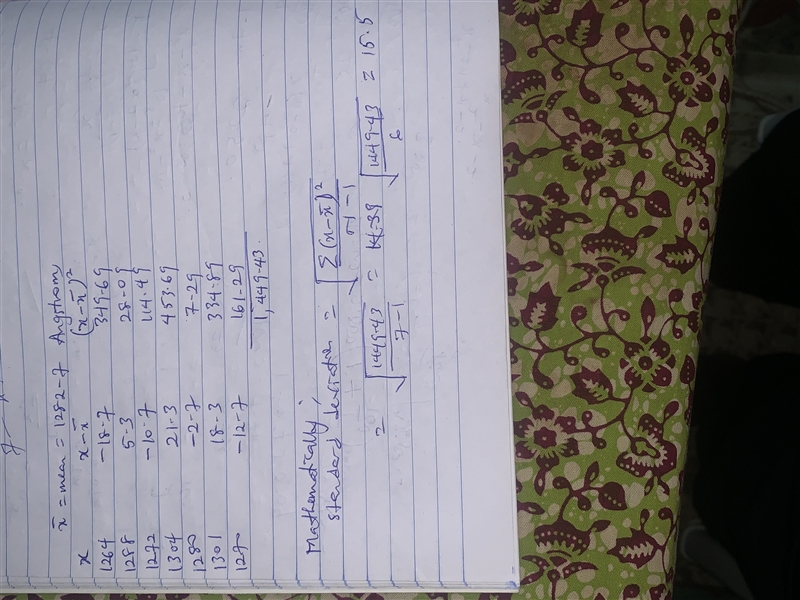 x̄ = mean = 1282.7 Angstrom
x x-x̄ (x-x̄)²
1264 -18.7 349.69
1288 5.3 28.09
1272 -10.7 114.49
1304 21.3 453.69
1280 -2.7 7.29
1301 18.3 334.89
1270 -12.7 161.29
1,449.43
Mathematically;
Standard deviation = √Σ(x-x̄)²/n-1
= √1449.43/7-1 = √1449.43/6 = 15.5